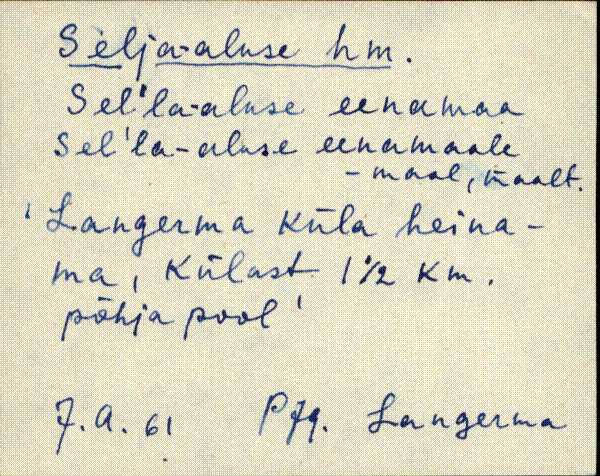 Selja-aluse hm.
Sel'la-aluse eenamaa
Sel'la-aluse eenamaale
-maal, maalt.
'Langerma küla heina-
ma, külast 1 1/2 km.
põhja pool'
7. A. 61 Pjg. Langerma